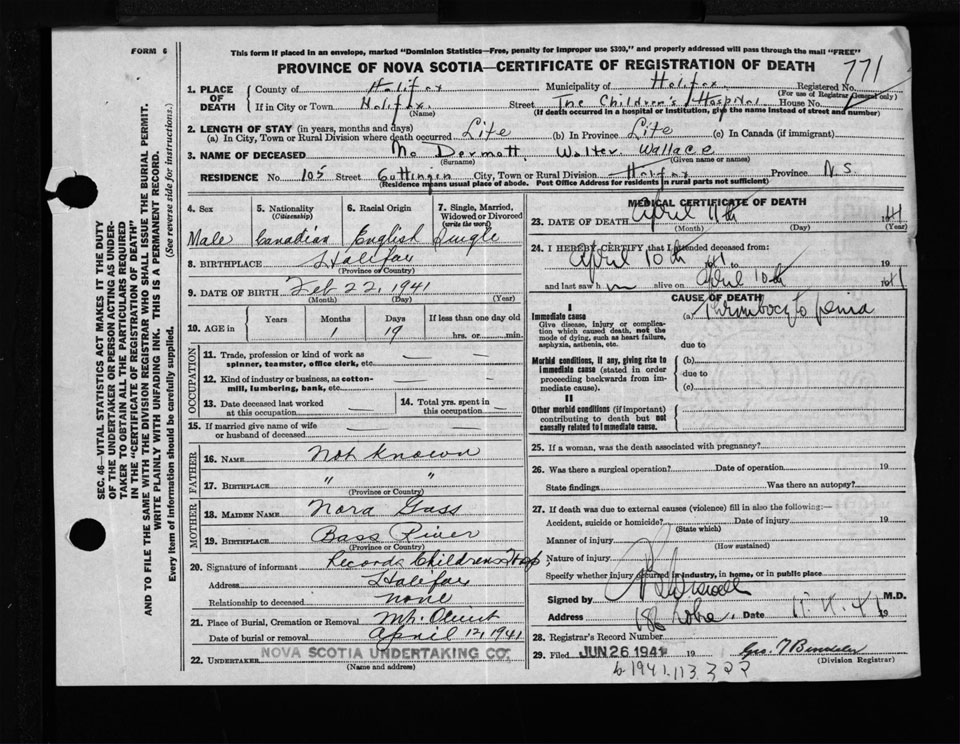 FORM 6
This form if placed in an envelope, marked "Dominion Statistics—Free, penalty for improper use $300," and properly addressed will pass through the mail "FREE"
PROVINCE OF NOVA SCOTIA—CERTIFICATE OF REGISTRATION OF DEATH
771
1. PLACE OF DEATH
County of Halifax Municipality of Halifax Registered No.
(For use of Registrar General only)
If in City or Town Halifax Street The Children's Hospital House No.
(Name) (If death occurred in a hospital or institution, give the name instead of street and number)
2. LENGTH OF STAY (in years, months and days)
(a) In City, Town or Rural Division where death occurred Life (b) In Province Life (c) In Canada (if immigrant)
3. NAME OF DECEASED Mc Dermott, Walter Wallace
(Surname) (Given name or names)
RESIDENCE No. 105 Street Gottingen City, Town or Rural Division Halifax Province N.S.
(Residence means usual place of abode. Post Office Address for residents in rural parts not sufficient)
4. Sex 5. Nationality 6. Racial Origin 7. Single, Married, Widowed or Divorced
(Citizenship) (write the word)
Male Canadian English Single
8. BIRTHPLACE Halifax
(Province or Country)
9. DATE OF BIRTH Feb 22, 1941
(Month) (Day) (Year)
10. AGE in Years Months Days If less than one day old
1 19 hrs. or min.
OCCUPATION
11. Trade, profession or kind of work as spinner, teamster, office clerk, etc. — —
12. Kind of industry or business, as cotton-mill, lumbering, bank, etc. — —
13. Date deceased last worked at this occupation — 14. Total yrs. spent in this occupation —
15. If married give name of wife or husband of deceased —
FATHER
16. NAME Not Known
17. BIRTHPLACE " "
(Province or Country)
MOTHER
18. MAIDEN NAME Nora Gass
19. BIRTHPLACE Bass River
(Province or Country)
20. Signature of informant Records Childrens Hosp,
Address Halifax
Relationship to deceased none
21. Place of Burial, Cremation or Removal Mt. Olivet
Date of burial or removal April 12, 1941
22. UNDERTAKER NOVA SCOTIA UNDERTAKING CO.
(Name and address)
MEDICAL CERTIFICATE OF DEATH
23. DATE OF DEATH April 11th 1941
(Month) (Day) (Year)
24. I HEREBY CERTIFY that I attended deceased from:
April 10th 1941 to 19
and last saw h im alive on April 10th 1941
CAUSE OF DEATH
I
Immediate cause
Give disease, injury or complication which caused death, not the mode of dying, such as heart failure, asphyxia, asthenia, etc.
(a) Thrombocytopenia
due to
Morbid conditions, if any, giving rise to immediate cause (stated in order proceeding backwards from immediate cause).
(b)
due to
(c)
II
Other morbid conditions (if important) contributing to death but not causally related to immediate cause.
25. If a woman, was the death associated with pregnancy?
26. Was there a surgical operation? Date of operation 19
State findings Was there an autopsy?
27. If death was due to external causes (violence) fill in also the following:
Accident, suicide or homicide? Date of injury 19
(State which)
Manner of injury
(How sustained)
Nature of injury
Specify whether injury occurred in industry, in home, or in public place
Signed by M.D.
Address 186 Date 11.IV.41 19
28. Registrar's Record Number
29. Filed JUN 26 1941 19
(Division Registrar)
b 1941.113.302
SEC. 46—VITAL STATISTICS ACT MAKES IT THE DUTY
OF THE UNDERTAKER OR PERSON ACTING AS UNDER-
TAKER TO OBTAIN ALL THE PARTICULARS REQUIRED
IN THE "CERTIFICATE OF REGISTRATION OF DEATH"
AND TO FILE THE SAME WITH THE DIVISION REGISTRAR WHO SHALL ISSUE THE BURIAL PERMIT.
WRITE PLAINLY WITH UNFADING INK. THIS IS A PERMANENT RECORD.
Every item of information should be carefully supplied. (See reverse side for instructions.)